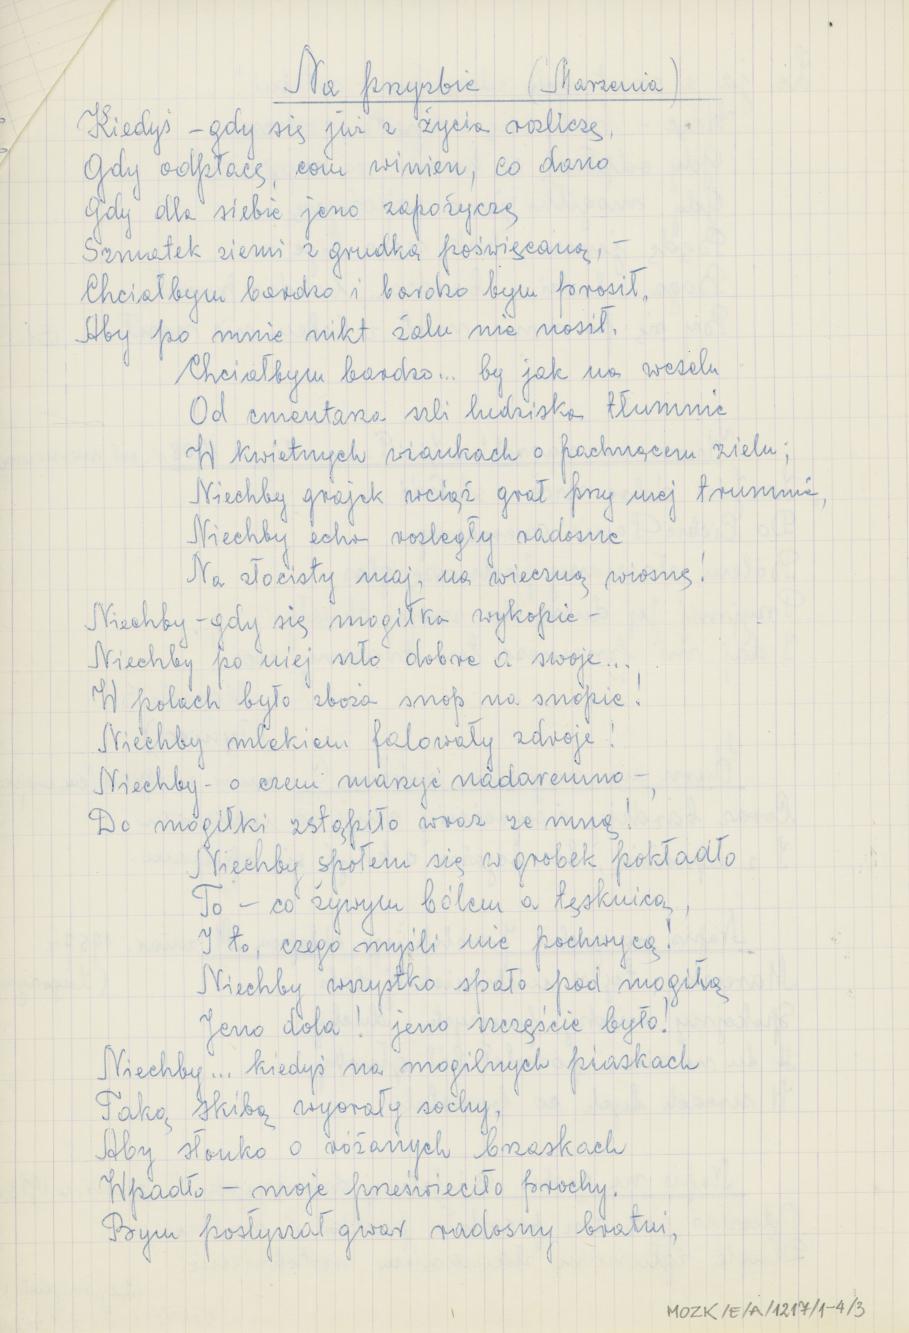 Na przyzbie (Marzenia)
Kiedyś – gdy się już z życia rozliczę,
Gdy odpłacę, com winien, co dano
Gdy dla siebie jeno zapożyczę
Szmatek ziemi z grudką poświęcaną, –
Chciałbym bardzo i bardzo bym prosił,
Aby po mnie nikt żalu nie nosił.
Chciałbym bardzo... by jak na weselu
Od cmentarza szli ludziska tłumnie
W kwietnych wiankach o pachnącem zielu;
Niechby grajek wciąż grał przy mej trumnie,
Niechby echa rozległy radosne
Na złocisty maj, na wieczną wiosnę!
Niechby – gdy się mogiłka wykopie –
Niechby po niej szło dobre a swoje...
W polach było zboża snop na snopie!
Niechby mlekiem falowały zdroje!
Niechby – o czem marzyć nadaremno –,
Do mogiłki zstąpiło wraz ze mną!
Niechby społem się w grobek pokładło
To – co żywym bólem a tęsknicą,
I to, czego myśli nie pochwycą!
Niechby wszystko spało pod mogiłą
Jeno dola! jeno szczęście było!
Niechby... kiedyś na mogilnych piaskach
Taką skibą wyorały sochy,
Aby słonko o różanych brzaskach
Wpadło – moje prześwieciło prochy.
Bym posłyszał gwar radosny bratni,
MOZK/E/A/1217/1-4/3